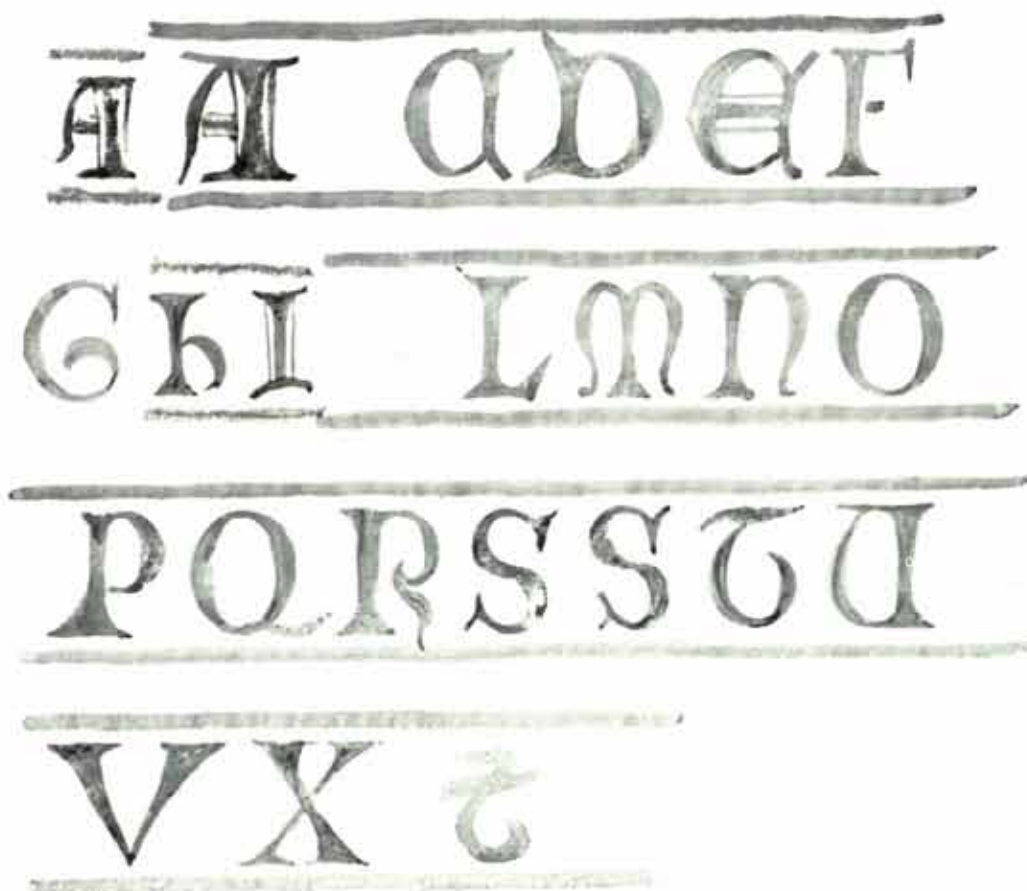 A A C D E F
G h I L M N O
P Q R S S T U
V X Z